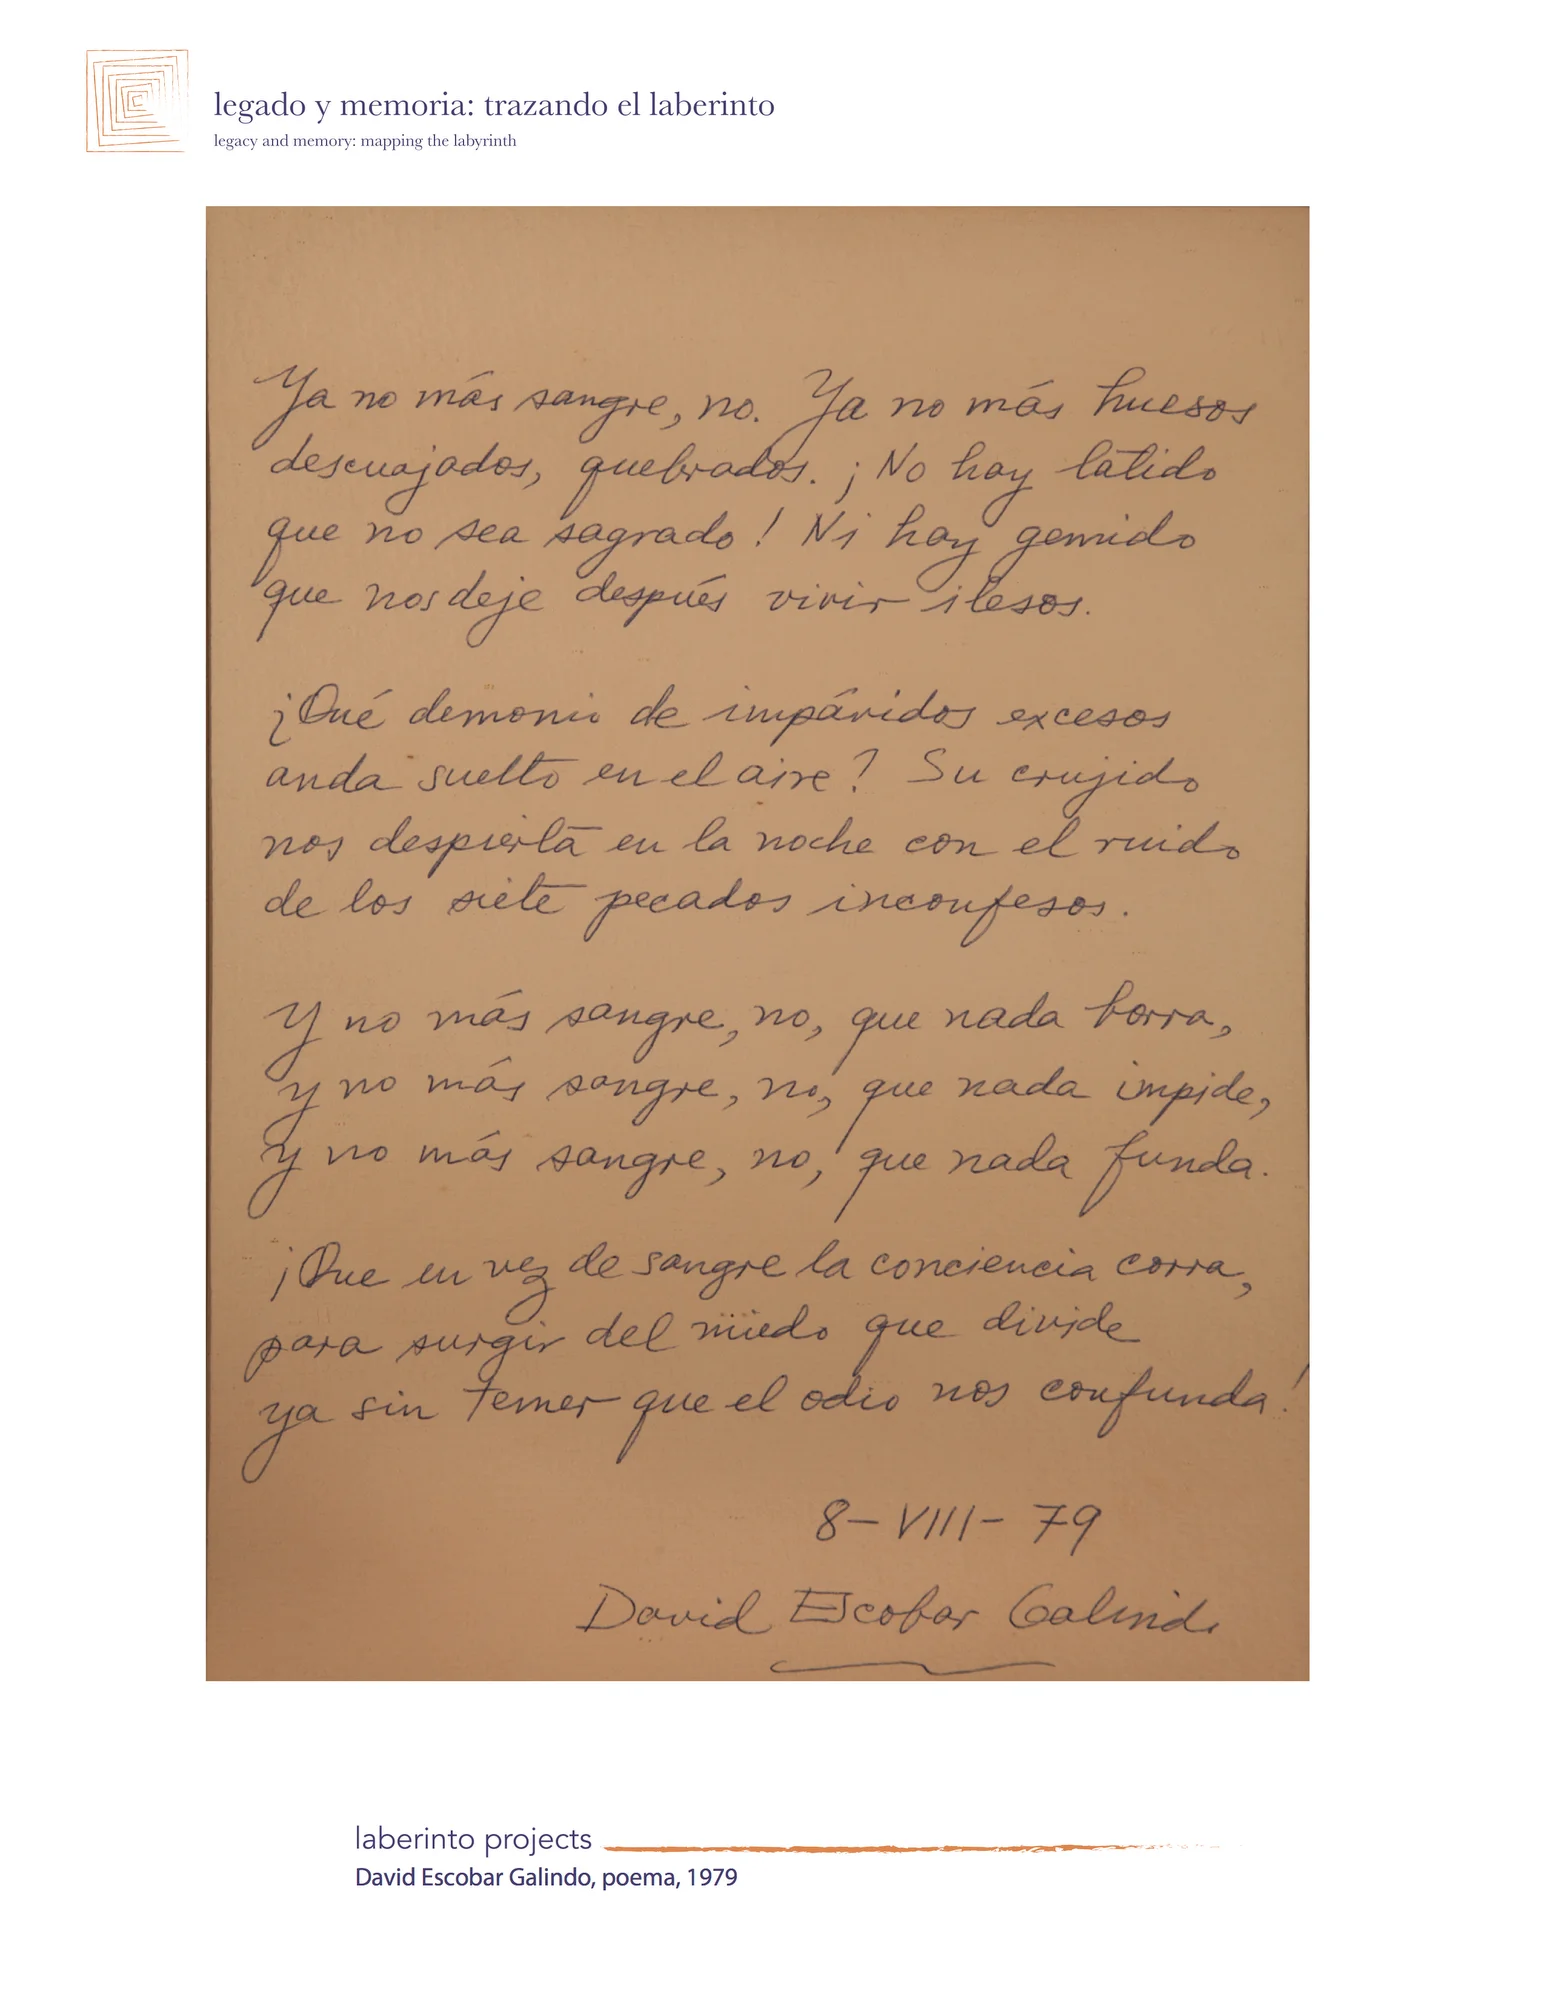 legado y memoria: trazando el laberinto
legacy and memory: mapping the labyrinth
Ya no más sangre, no. Ya no más huesos
descuajados, quebrados. ¡No hay latido
que no sea sagrado! Ni hay gemido
que nos deje después vivir ilesos.
¿Qué demonio de impávidos excesos
anda suelto en el aire? Su crujido
nos despierta en la noche con el ruido
de los siete pecados inconfesos.
Y no más sangre, no, que nada borra,
y no más sangre, no, que nada impide,
y no más sangre, no, que nada funda.
¡Que en vez de sangre la conciencia corra,
para surgir del miedo que divide
ya sin temer que el odio nos confunda!
8-VIII-79
David Escobar Galindo
laberinto projects
David Escobar Galindo, poema, 1979